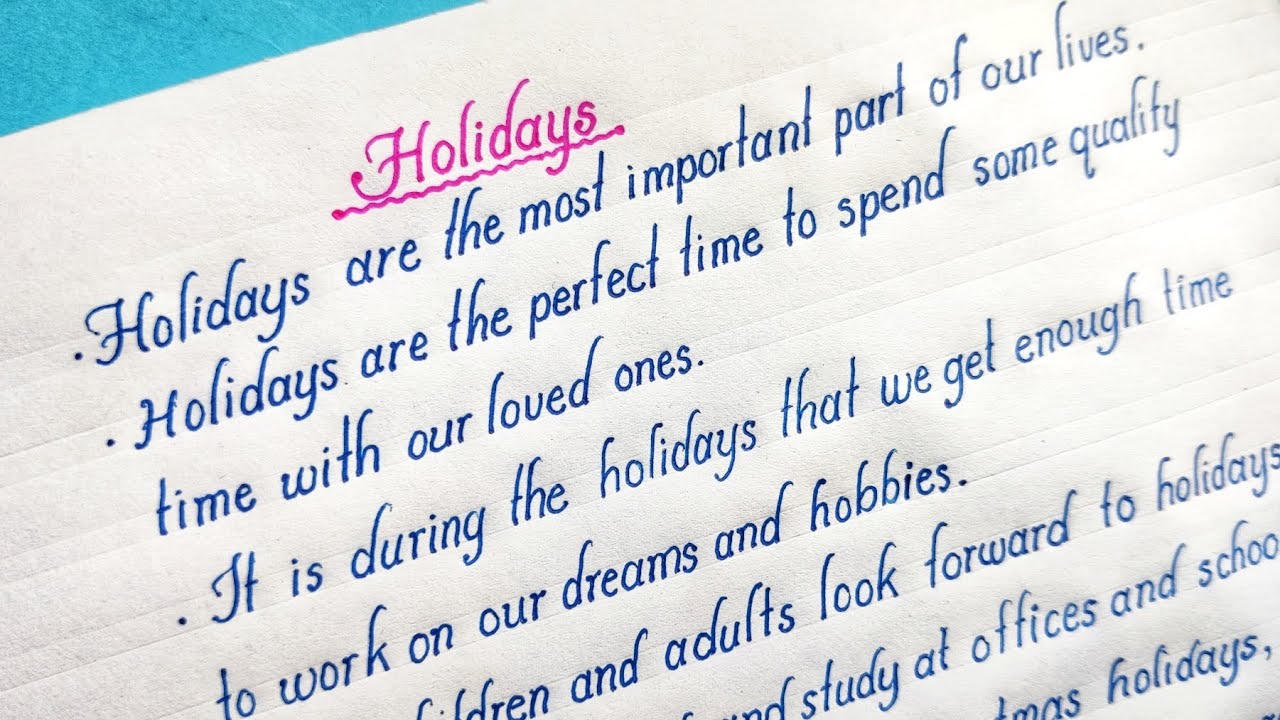 Holidays
. Holidays are the most important part of our lives.
. Holidays are the perfect time to spend some quality
time with our loved ones.
. It is during the holidays that we get enough time
to work on our dreams and hobbies.
and adults look forward to holidays
and study at offices and
holidays,